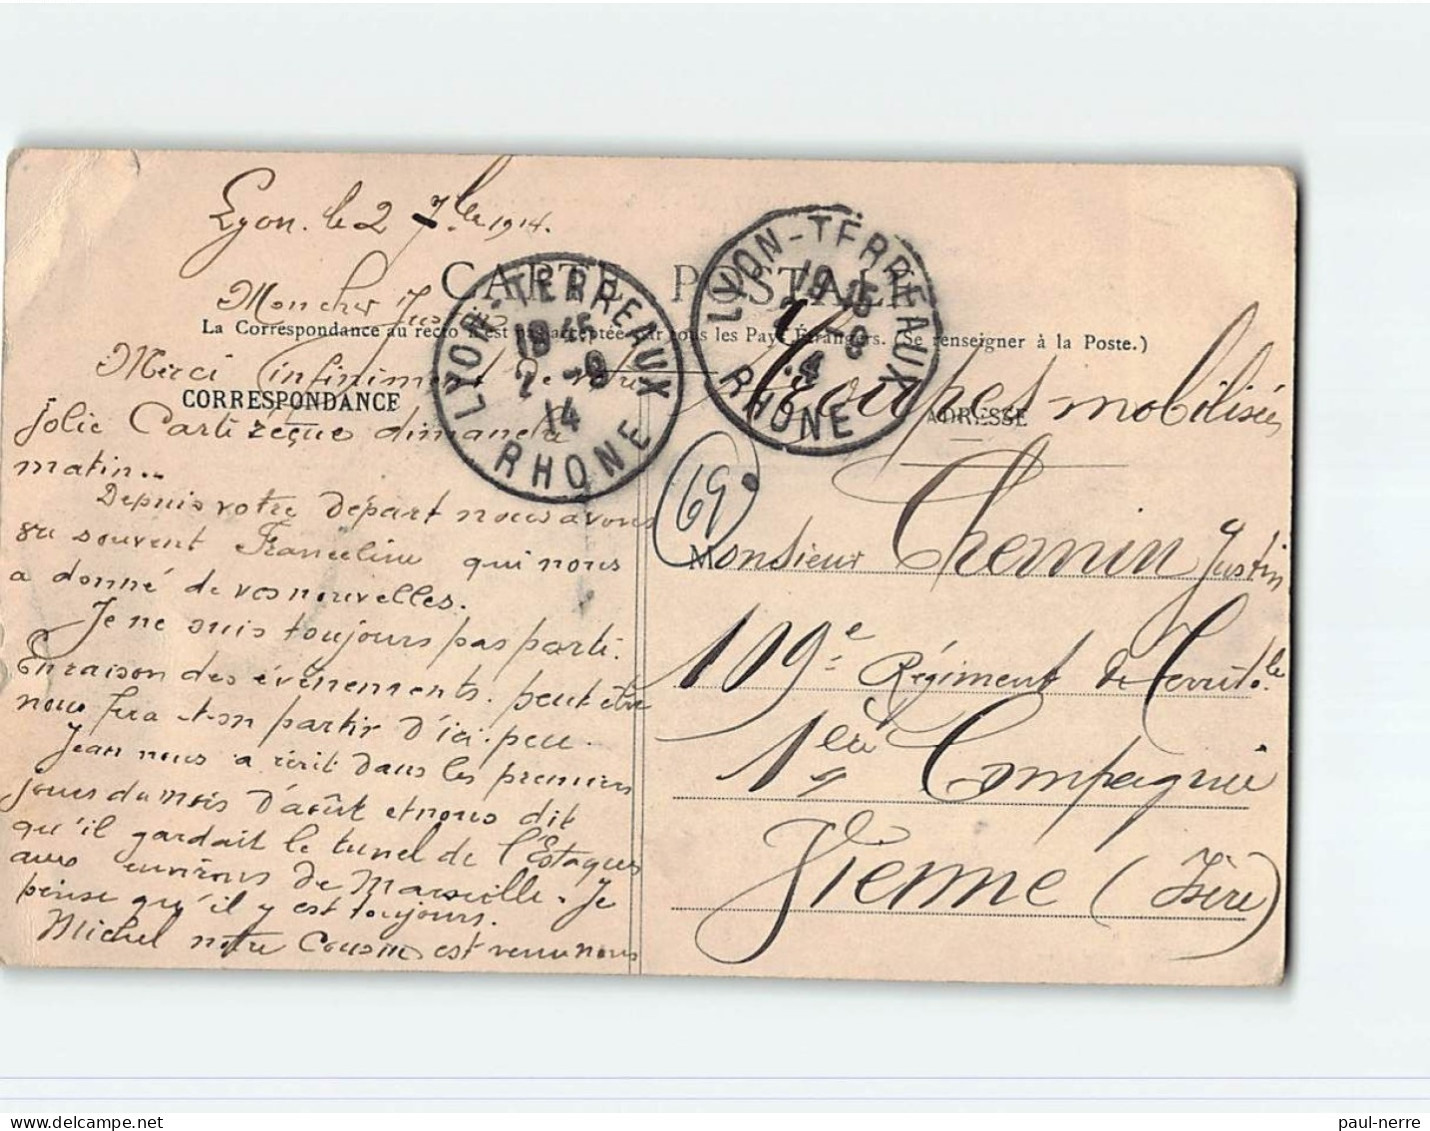 Lyon. le 2 7bre 1914.
CARTE POSTALE
Mon cher Justin
La Correspondance au recto n'est pas acceptée par tous les Pays Étrangers. (Se renseigner à la Poste.)
Merci infiniment de votre
CORRESPONDANCE
jolie Carte reçue dimanche
matin..
Depuis votre départ nous avons
vu souvent Franceline qui nous
a donné de vos nouvelles.
Je ne suis toujours pas parti.
En raison des événements. peut être
nous fera-t-on partir d'ici-peu.
Jean nous a écrit dans les premiers
jours du mois d'août et nous dit
qu'il gardait le tunel de l'Estaques
aux environs de Marseille. Je
pense qu'il y est toujours.
Michel notre Cousin est venu nous
LYON-TERREAUX
18 45
2 -9
14
RHONE
LYON-TERREAUX
19 15
2 - 9
14
RHONE
Troupes mobilisées
ADRESSE
69
Monsieur Chemin Justin
109e Régiment de Territole
1ère Compagnie
Vienne (Isère)
paul-nerre